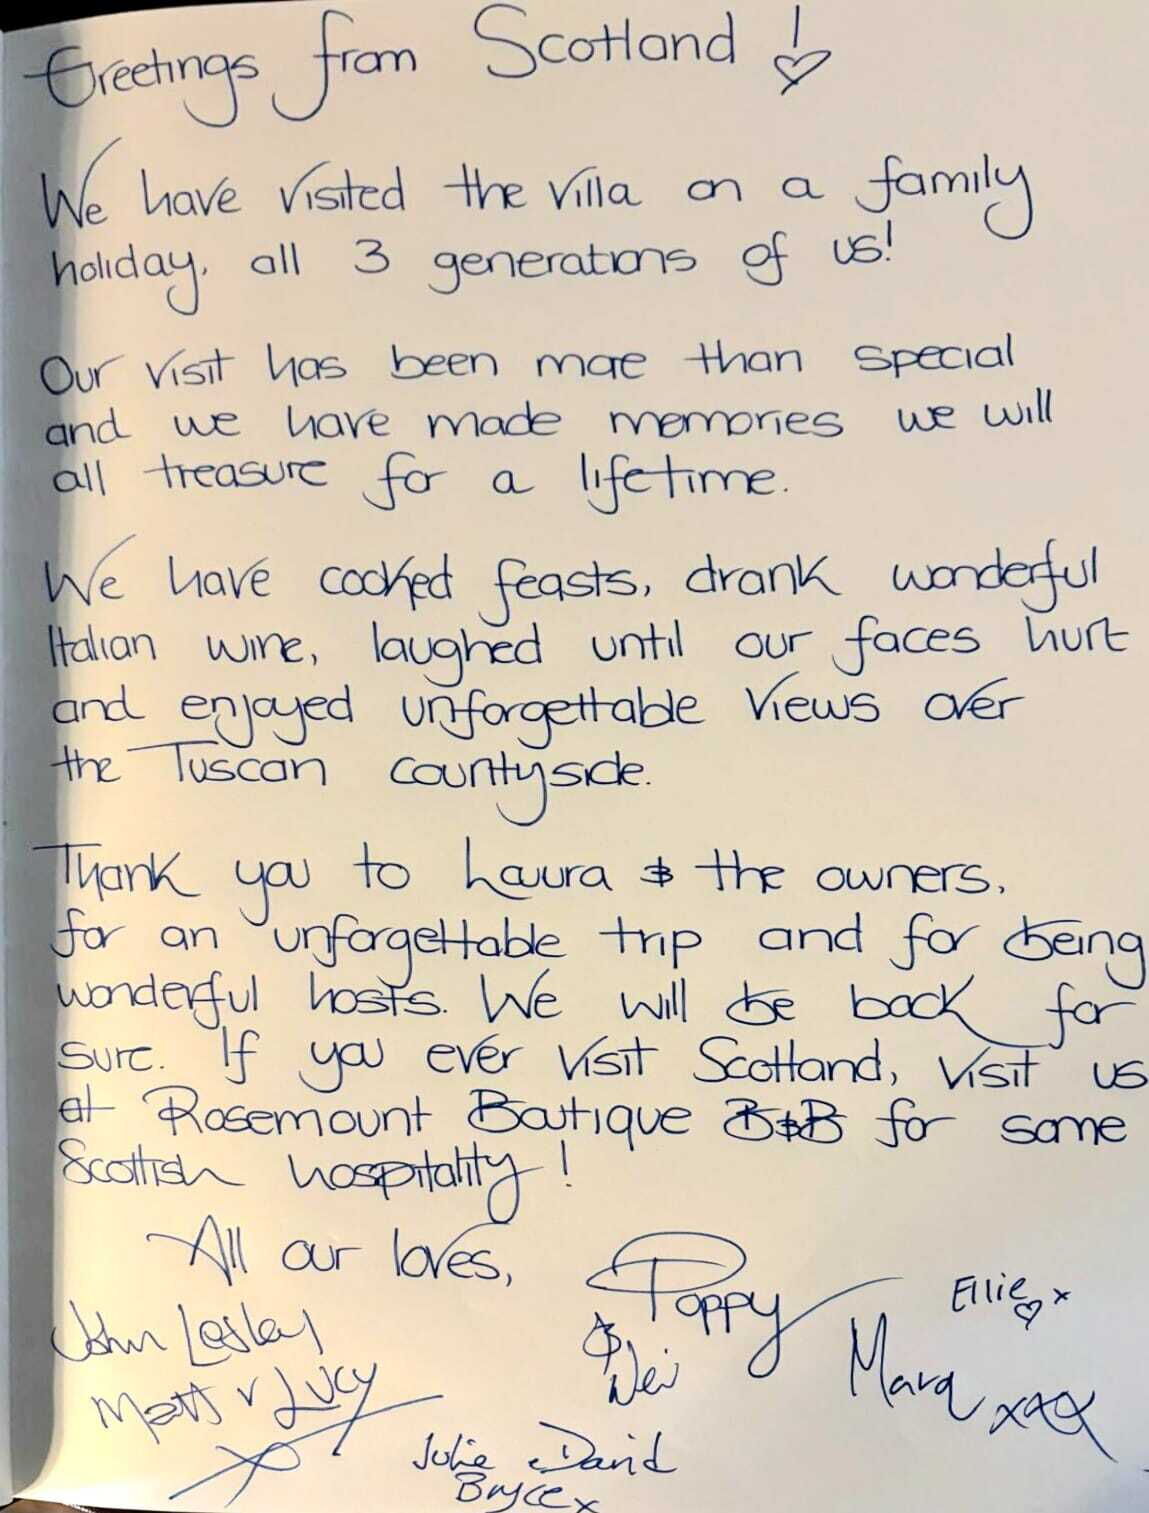 Greetings from Scotland!
We have visited the villa on a family
holiday, all 3 generations of us!
Our visit has been more than special
and we have made memories we will
all treasure for a lifetime.
We have cooked feasts, drank wonderful
Italian wine, laughed until our faces hurt
and enjoyed unforgettable views over
the Tuscan countyside.
Thank you to Laura & the owners.
for an unforgettable trip and for being
wonderful hosts. We will be back for
sure. If you ever visit Scotland, visit us
at Rosemount Boutique B&B for some
Scottish hospitality!
All our loves,
Poppy
Ellie x
John Lesley
&
Mara xxx
Matt & Lucy
x
Julie & David
Bryce x